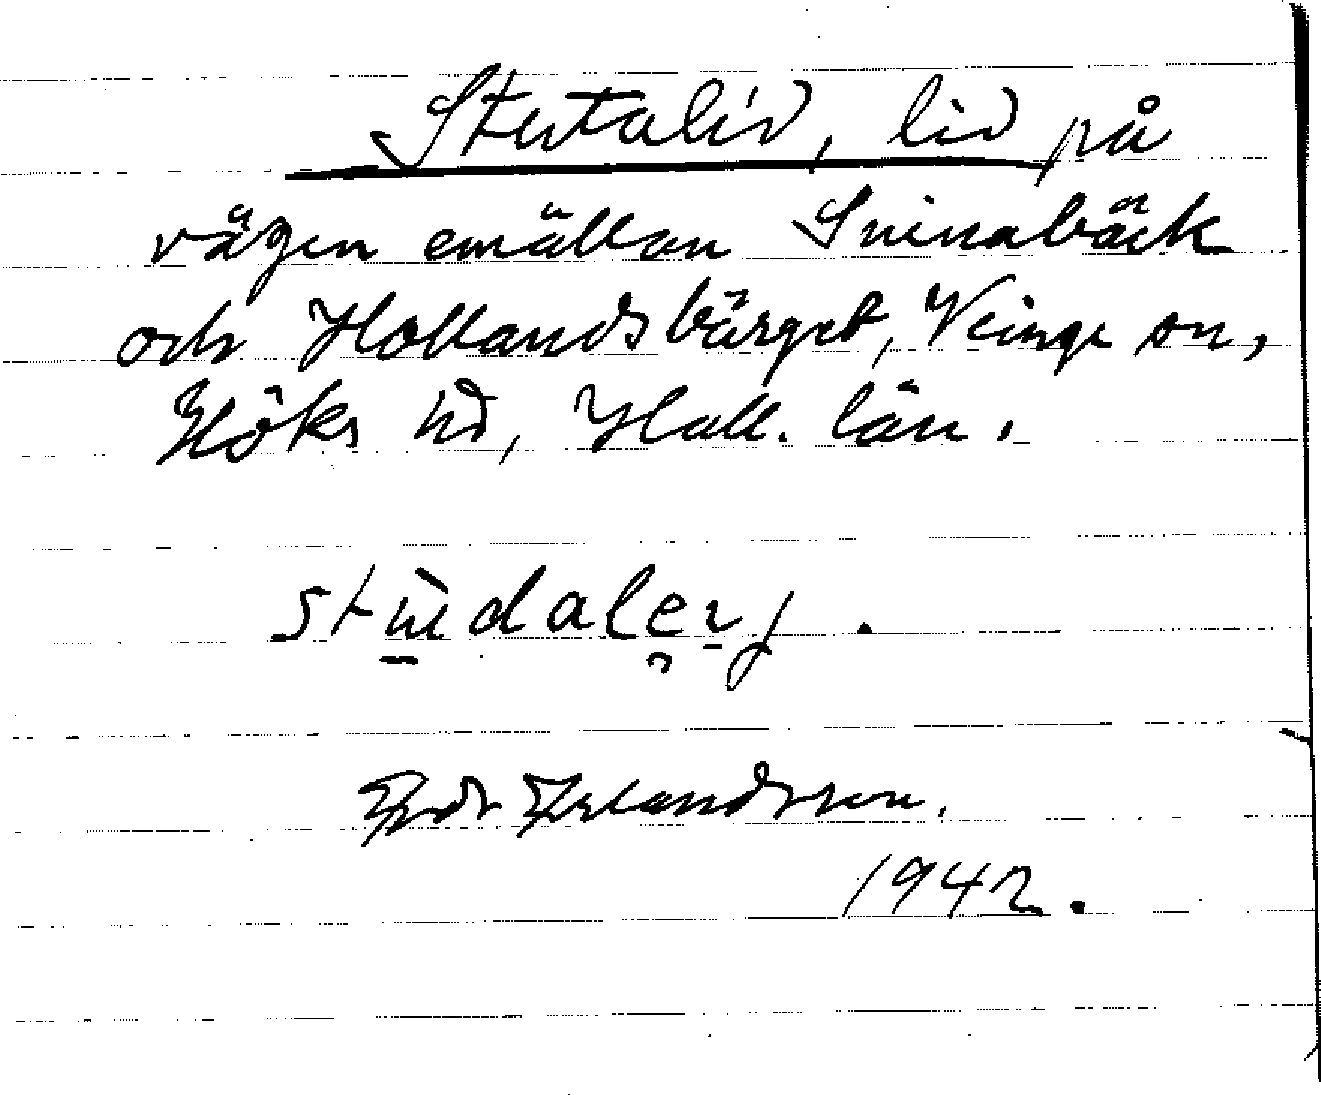 Stutalid, lid på
vägen emällan Svinabäck
och Hollandsbärget, Veinge sn,
Höks hd, Hall. län.
Erlandsson.
1942.